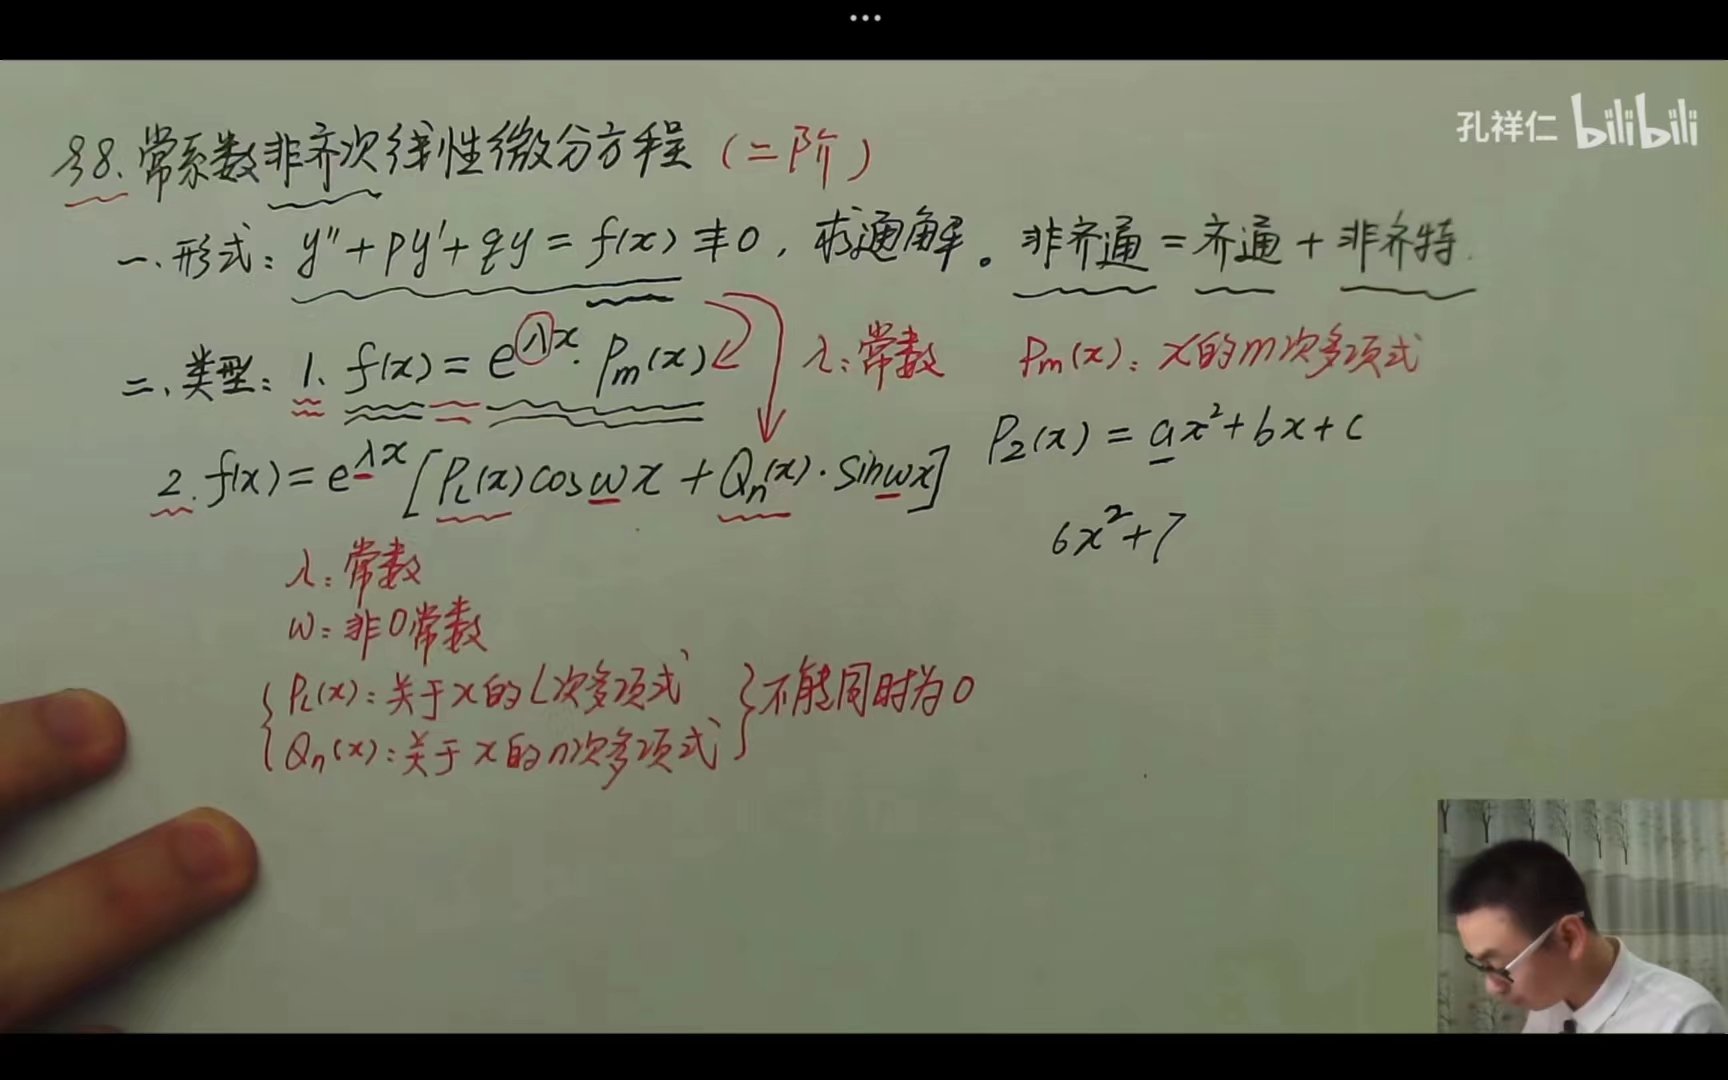 ...
孔祥仁 bilibili
§8.常系数非齐次线性微分方程（二阶）
一.形式：y''+py'+qy=f(x)≢0，求通解。非齐通=齐通+非齐特.
二.类型：1. f(x)=e^{λx}·P_m(x) λ：常数 P_m(x)：x的m次多项式
P_2(x)=ax²+bx+c
2. f(x)=e^{λx}[P_L(x)cosωx+Q_n(x)·sinωx]
6x²+7
λ：常数
ω：非0常数
{P_L(x)：关于x的L次多项式}不能同时为0
Q_n(x)：关于x的n次多项式